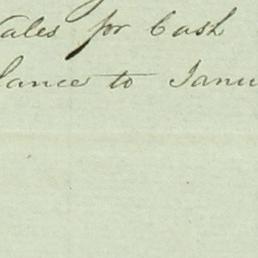 ales for Cash
lance to Janu